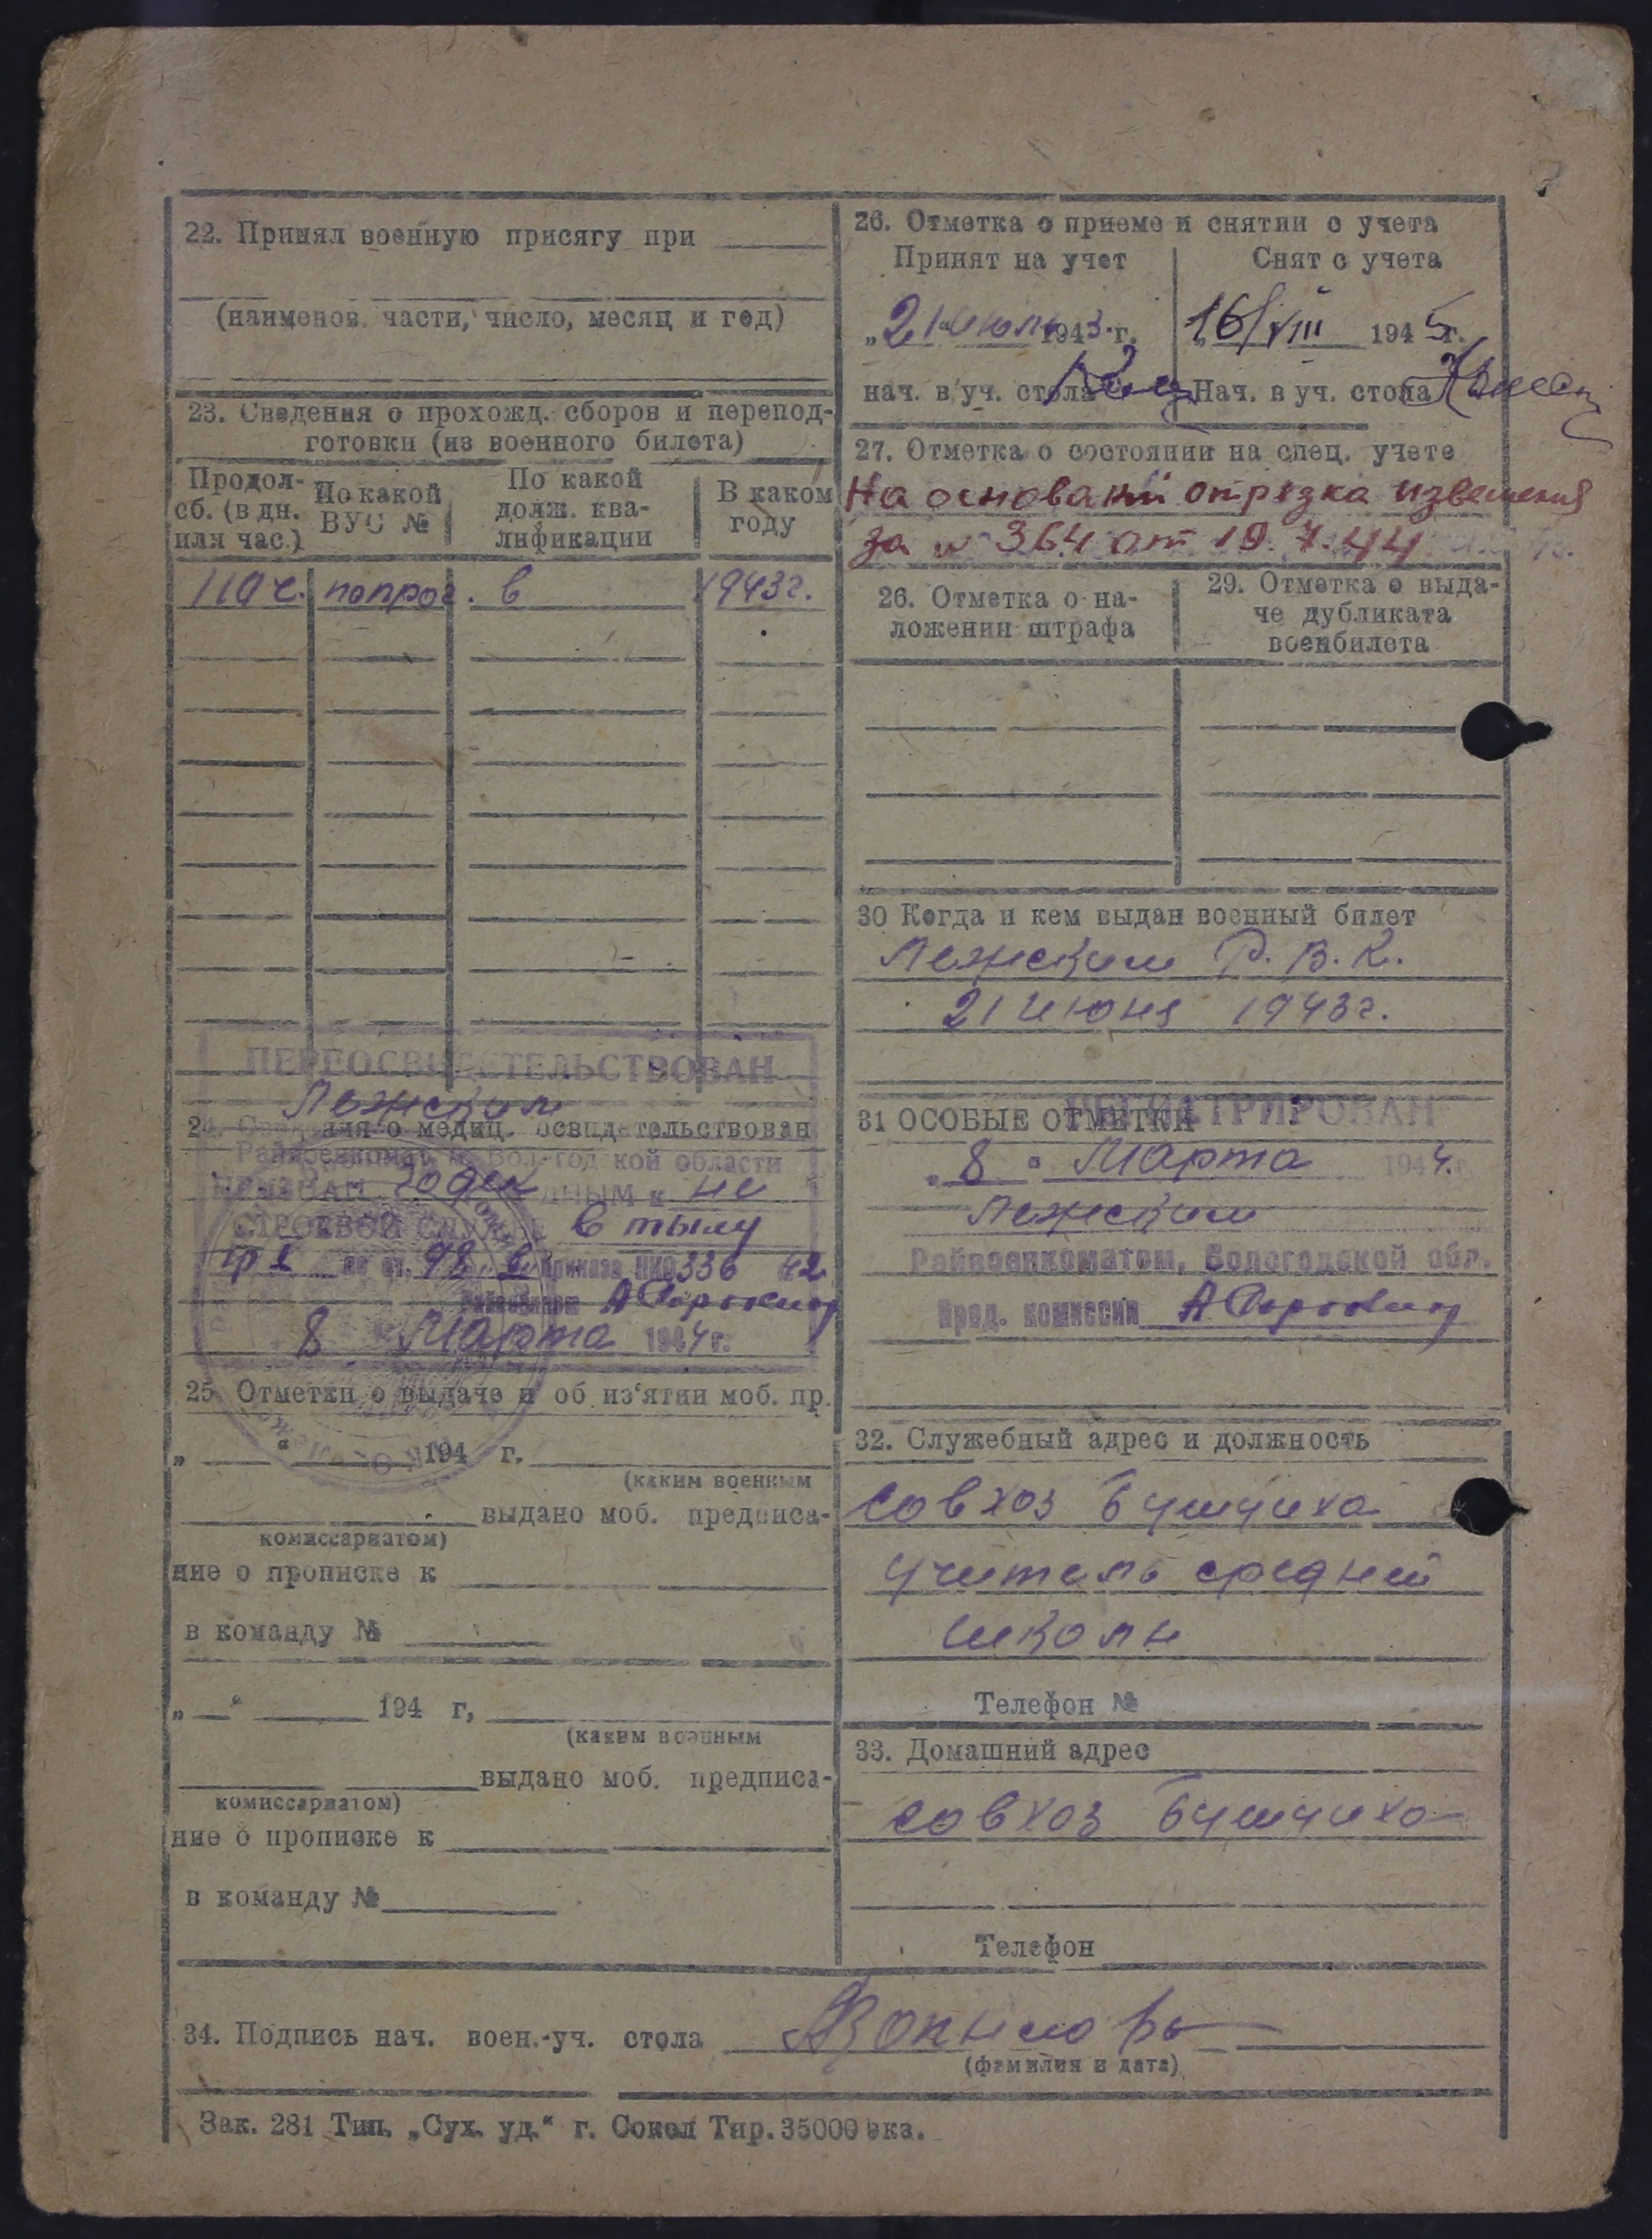 22. Принял военную присягу при
(наименов. части, число, месяц и год)
23. Сведения о прохожд. сборов и перепод-
готовки (из военного билета)
Продол-
сб. (в дн.
или час.)
По какой
ВУС №
По какой
долж. ква-
лификации
В каком
году
110 ч. попрог. в 1943г.
ПЕРЕОСВИДЕТЕЛЬСТВОВАН
Лежским
24. Сведения о медиц. освидетельствован
Райвоенкомат м Вологодской области
ПРИЗНАН годен ДНЫМ к не
СТРОЕВОЙ СЛУЖБЕ в тылу
гр I по ст. 98 в Приказа НКО 336 42
Райвоенком
8 Марта 1944 г.
25. Отметки о выдаче и об из'ятии моб. пр.
„ “ 194 г.
(каким военным
выдано моб. предписа-
комиссариатом)
ние о прописке к
в команду №
„ “ 194 г,
(каким военным
выдано моб. предписа-
комиссариатом)
ние о прописке к
в команду №
26. Отметка о приеме и снятии с учета
Принят на учет
Снят с учета
„21“ июнь 1943 г.
16/VIII 1945 г.
нач. в/уч. стола
Нач. в уч. стола
27. Отметка о состоянии на спец. учете
На основании отрезка извещения
за № 364 от 19.7.44
26. Отметка о на-
ложении штрафа
29. Отметка о выда-
че дубликата
военбилета
30 Когда и кем выдан военный билет
Лежским Р.В.К.
21 июня 1943г.
31 ОСОБЫЕ ОТМЕТКИ
РЕГИСТРИРОВАН
„8“ Марта 1944 г.
Лежским
Райвоенкоматом, Вологодской обл.
Пред. комиссии
32. Служебный адрес и должность
совхоз Бушуиха
учитель средней
школы
Телефон №
33. Домашний адрес
совхоз Бушуиха
Телефон
34. Подпись нач. воен.-уч. стола
(фамилия и дата)
Зак. 281 Тип. „Сух. уд.“ г. Сокол Тир. 35000 экз.